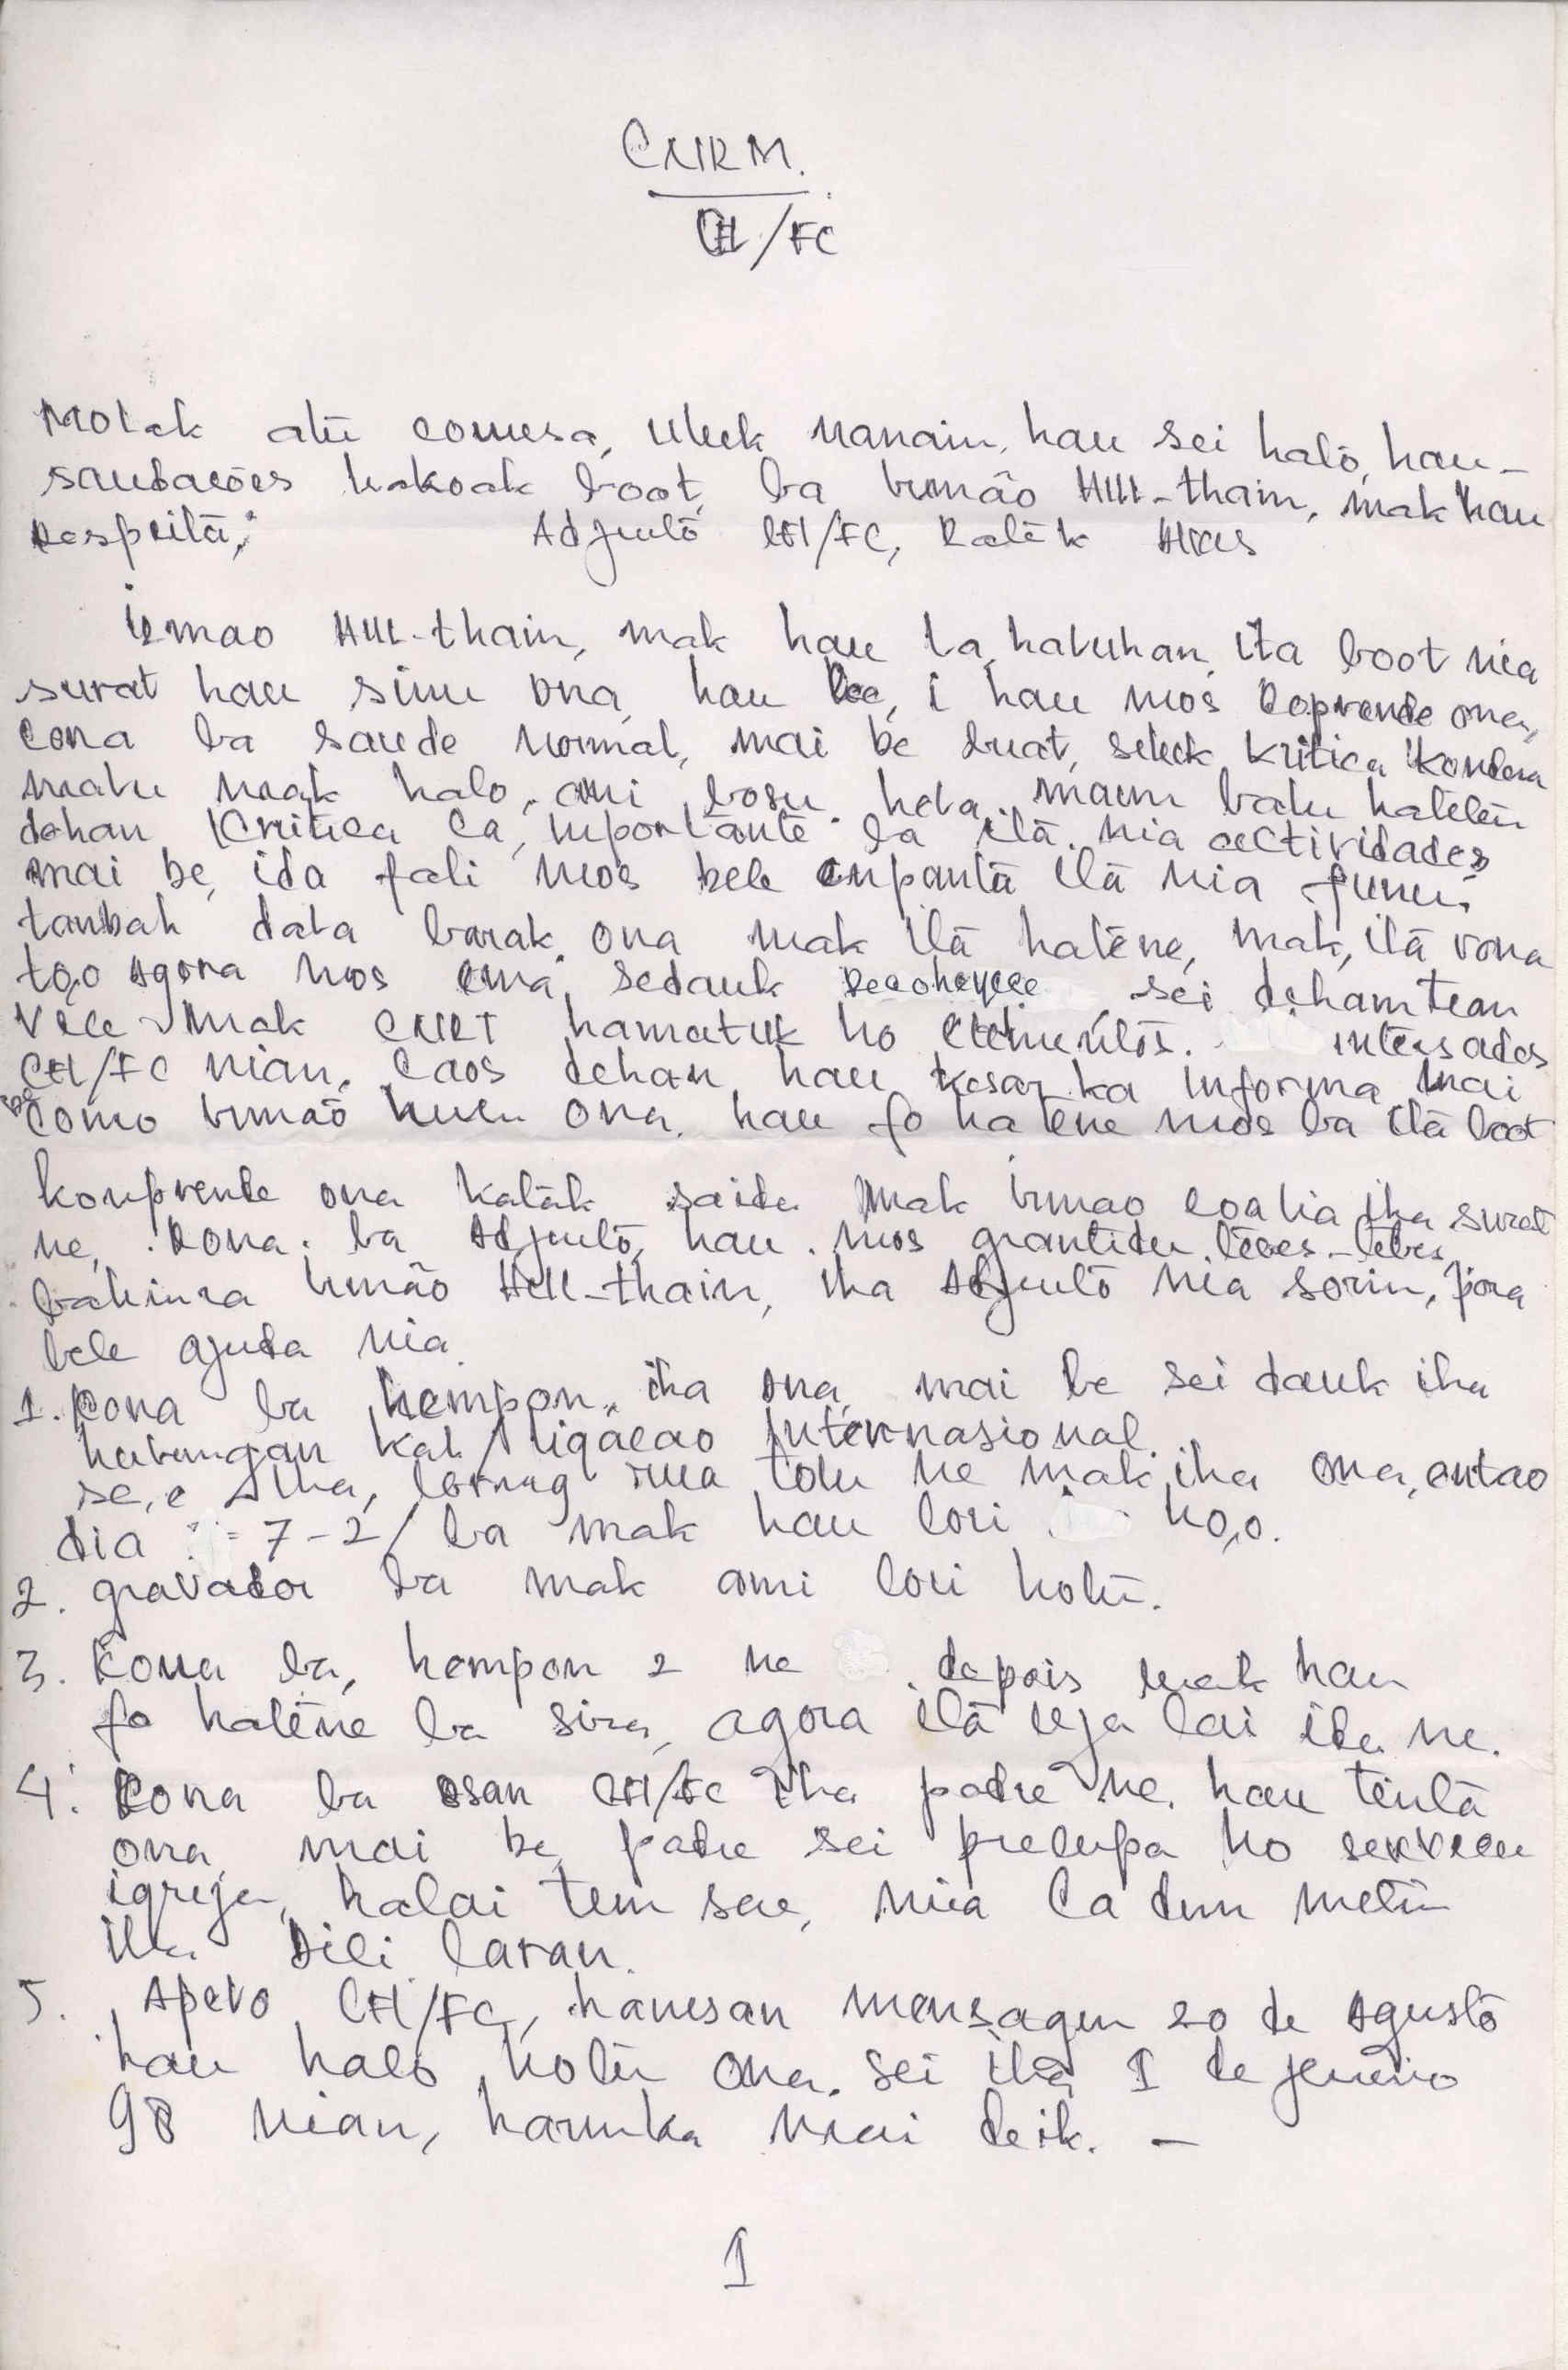 CNRM.
CH/FC
Molok atu comesa, uluk nanain, hau sei halo, hau-
saudacões hakoak boot, ba irmão HILL-thain, mak hau
Respeitâ; Adjuntõ CH/FC, Ratêk Hias
irmao HILL-thain, mak hau la haluhan, ita boot nia
surat hau simu ona, hau lee, i hau mos Coprende ona,
cona ba saude normal, mai be buat, seluk kritica kondena
malu mak halo, ami bosu hela, maun balu hatetên
dehan Kritica ca, inportântê ba itâ nia actividades
mai be, ida fali mos bele enpantâ itâ nia funu,
tanbah data barak ona mak itâ hatêne, mak, itâ rona
to,o Agora mos ema, sedauk Reconhece, sei deham tean
mak CNRT hamatuk ho elementõs. intersados
CH/FC nian, Laos dehan hau kesar ka informa mai
be como irmaõ husu ona, hau fo hatene mos ba itâ boot
konprende ona katâk saida mak irmao coalia iha surat
ne, Kona ba Adjuntõ, hau mos grantidu têbes-têbes
bainira irmão HILL-thain, iha Adjuntõ nia sorin, pora
bele ajuda nia.
1. Kona ba hempon, iha ona, mai be sei dauk iha
hubungan kal / ligacao internasional.
se,e iha, lorong rua tolu ne mak iha ona, entao
dia 7-2/ ba mak hau lori ho,o.
2. gravador ba mak ami lori hotu.
3. Kona ba, hempon 2 ne depois mak hau
fo hatêne ba sira, agora itâ uja lai ida ne.
4. Kona ba osan CH/FC iha padre ne, hau tentâ
ona, mai be, padre sei precupa ho servecu
igreja, halai tun sae, nia la dun metin
iha Dili laran.
5. Apelo CH/FC, hanesan mensagen 20 de Agustõ
hau halo hotu ona, sei iha 1 de jeneiro
98 nian, haruka mai deik. -
1